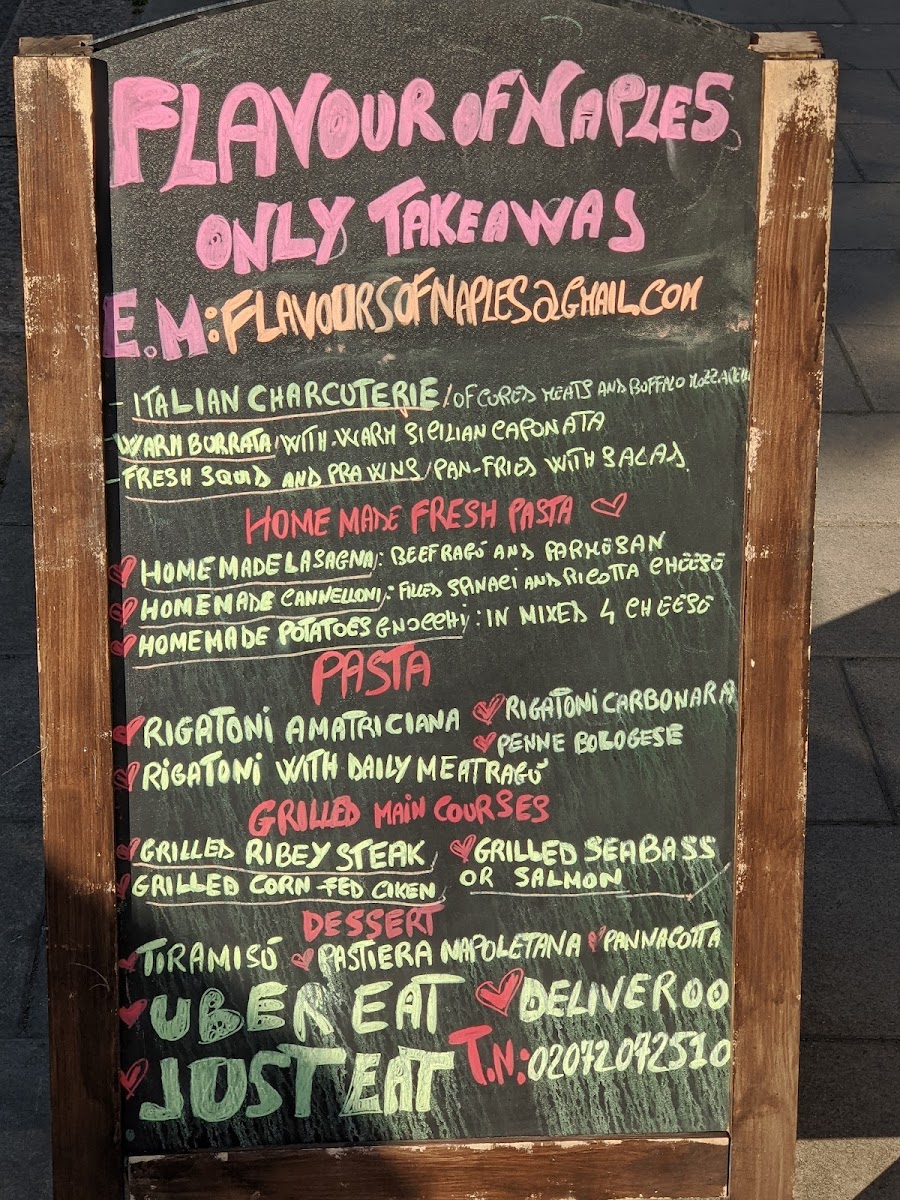 FLAVOUR OF NAPLES
ONLY TAKEAWAS
E.M: FLAVOURSOFNAPLES@GMAIL.COM
- ITALIAN CHARCUTERIE / OF CURED MEATS AND BUFFALO MOZZARELLA
- WARM BURRATA / WITH WARM SICILIAN CAPONATA
- FRESH SQUID AND PRAWNS / PAN-FRIED WITH SALAD.
HOME MADE FRESH PASTA
HOMEMADE LASAGNA: BEEF RAGÚ AND PARMESAN
HOMEMADE CANNELLONI: FILLED SPINACI AND RICOTTA CHEESE
HOMEMADE POTATOES GNOCCHI: IN MIXED 4 CHEESE
PASTA
RIGATONI AMATRICIANA
RIGATONI CARBONARA
PENNE BOLOGESE
RIGATONI WITH DAILY MEAT RAGÚ
GRILLED MAIN COURSES
GRILLED RIBEY STEAK
GRILLED SEABASS
OR SALMON
GRILLED CORN-FED CIKEN
DESSERT
TIRAMISÚ PASTIERA NAPOLETANA PANNACOTTA
UBER EAT DELIVEROO
JUST EAT T.N: 02072072510